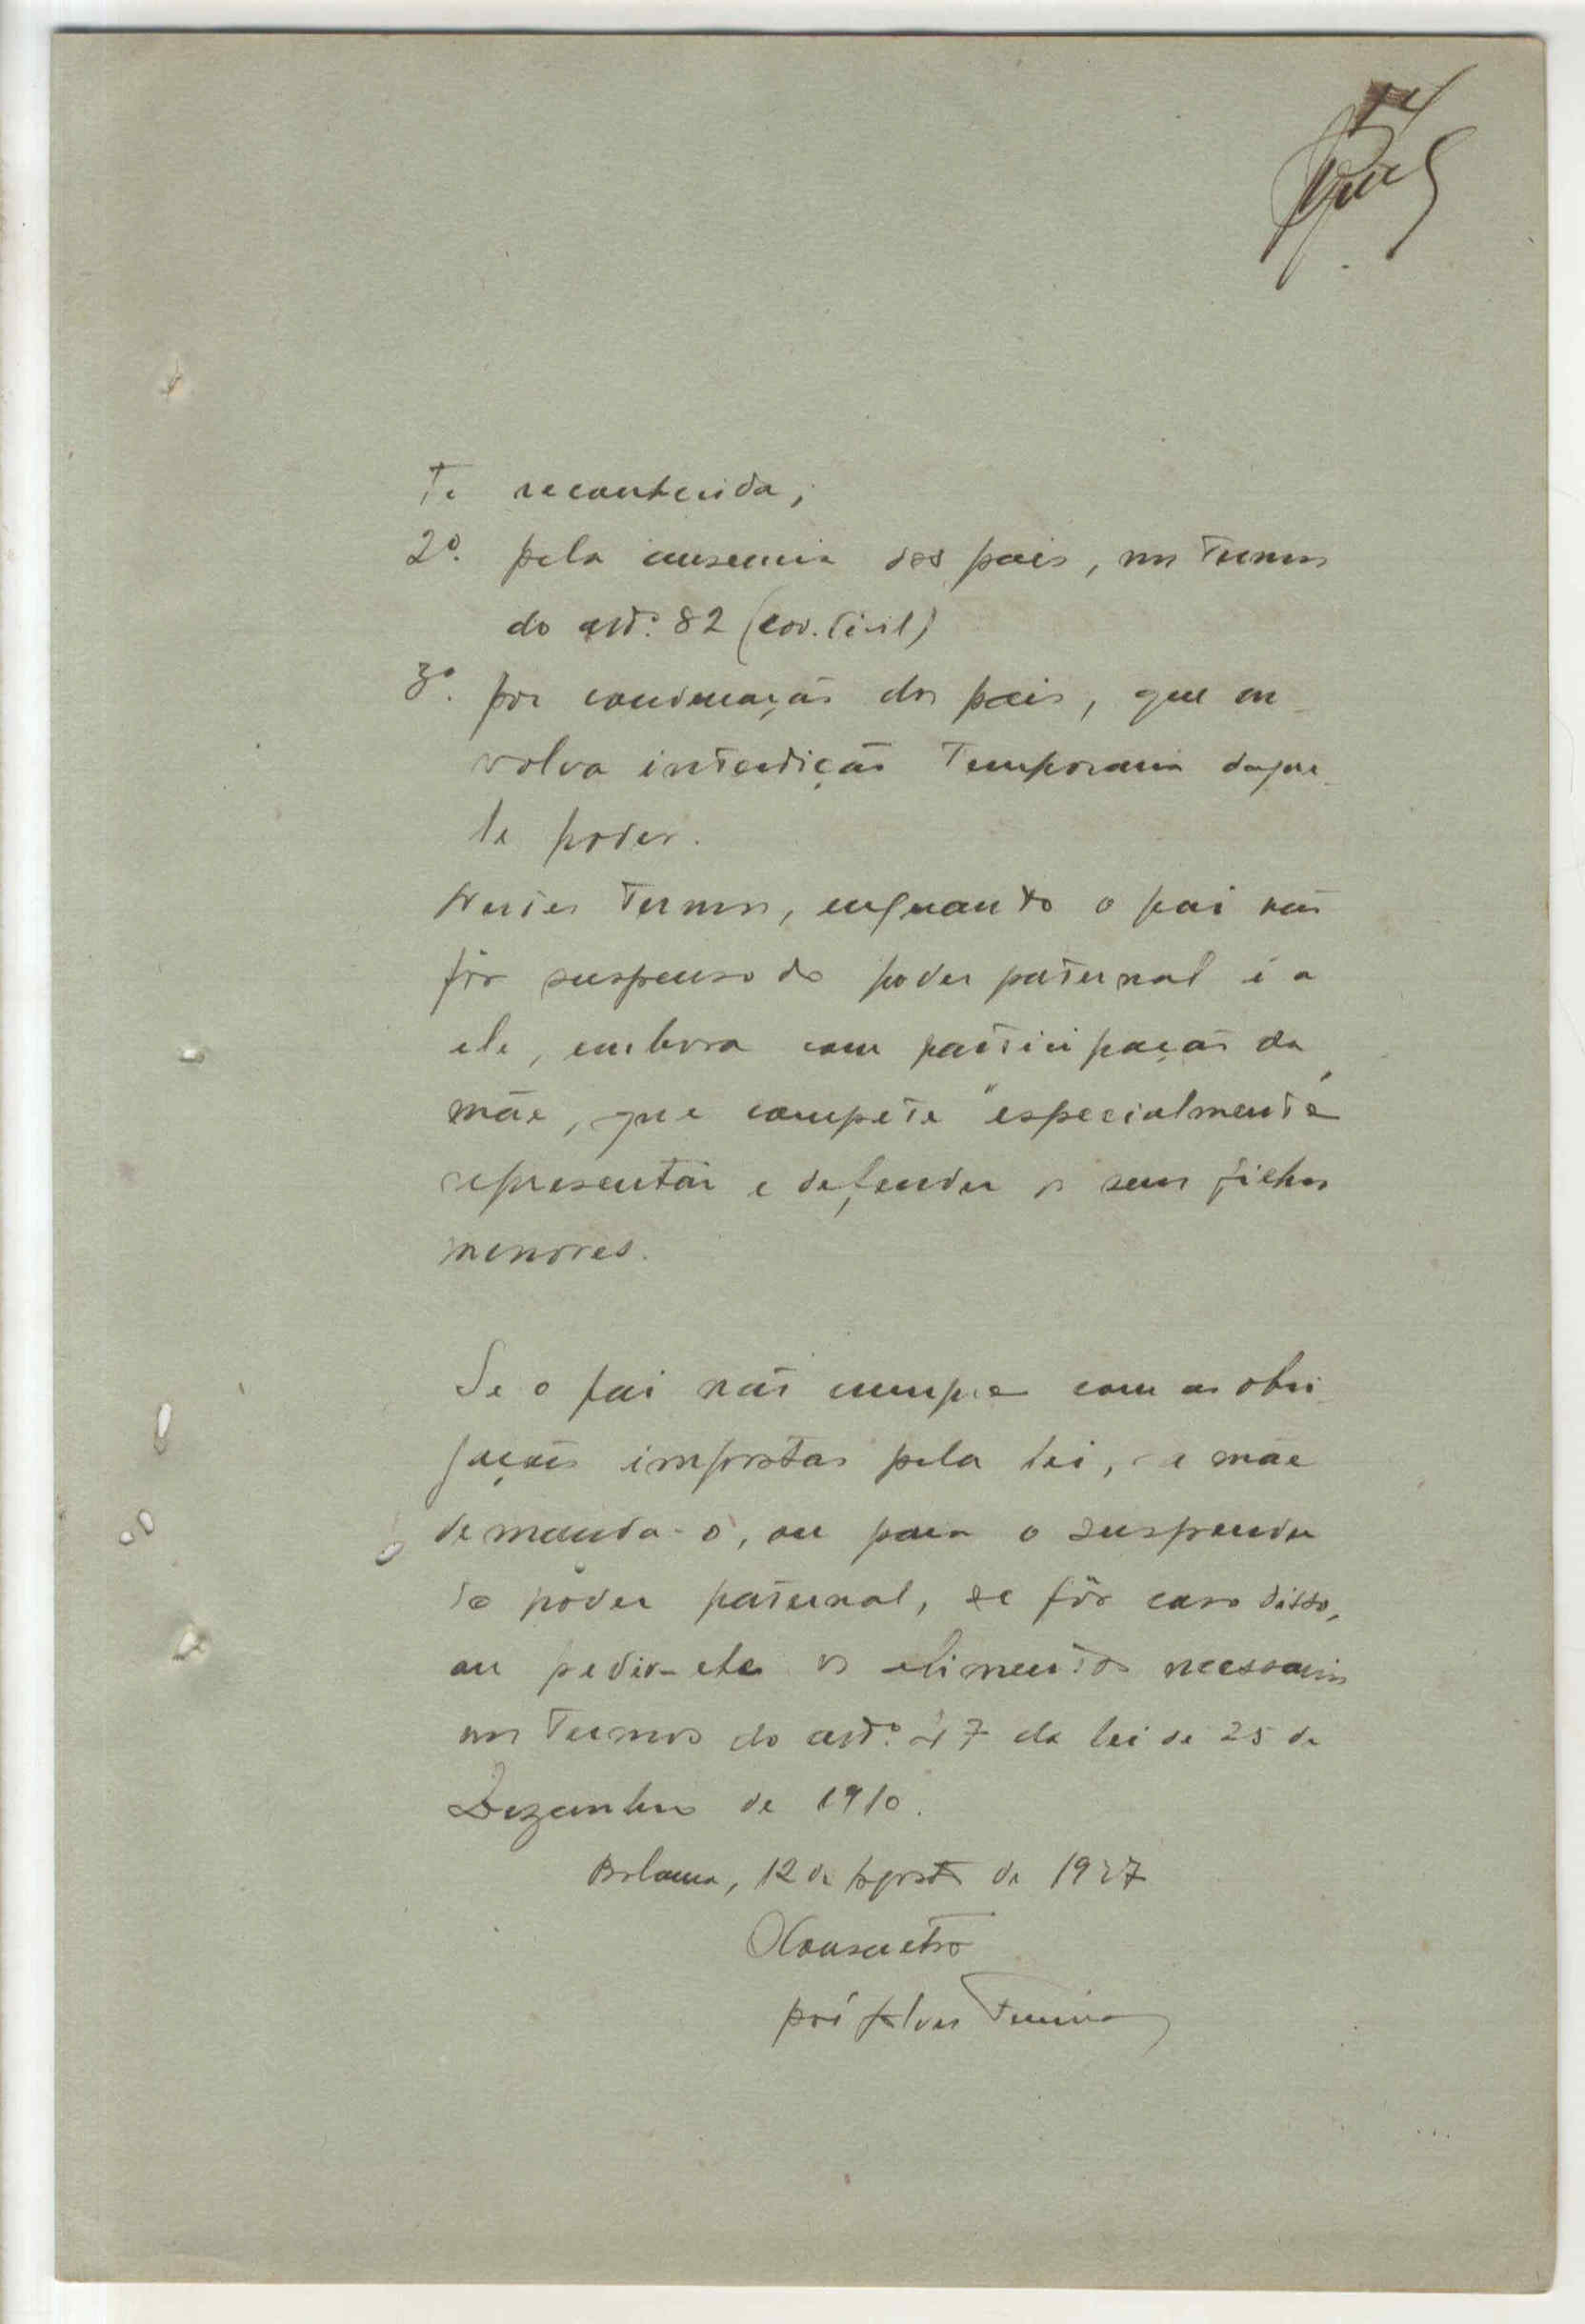 te reconhecida;
2º. pela ausencia dos pais, nos termos
do artº. 82 (Cod. Civil)
3º. por condenação dos pais, que en-
volva interdição temporaria daque-
le poder.
Nestes termos, enquanto o pai não
fôr suspenso do poder paternal é a
ele, embora com participação da
mãe, que compete "especialmente"
representar e defender os seus filhos
menores.
Se o pai não cumpre com as obri-
gações impostas pela lei, a mãe
demanda-o, ou para o suspender
do pôder paternal, se fôr caso disso,
ou pedir-lhe os alimentos necessarios
nos termos do artº. 47 da lei de 25 de
Dezembro de 1910.
Bolama, 12 de Agosto de 1927
José Alves Ferreira